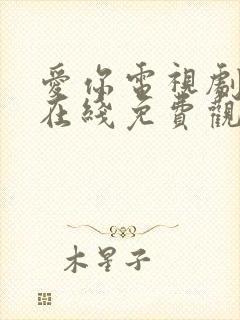 愛你電視劇
在綫免費觀
木星子